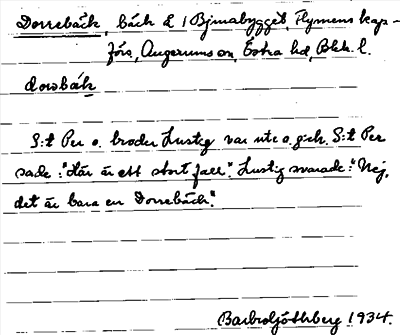 Dorrebäck, bäck i 1 Bjmabygget, Flymens kap-
förs, Augerums sn, Östra hd, Blek. l.
dorəbäk
S:t Per o. broder Lustig var ute o. gick. S:t Per
sade: "Här är ett stort fall". Lustig svarade: "Nej,
det är bara en Dorrebäck."
1934.